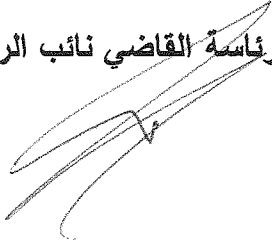 رئاسة القاضي نائب الر